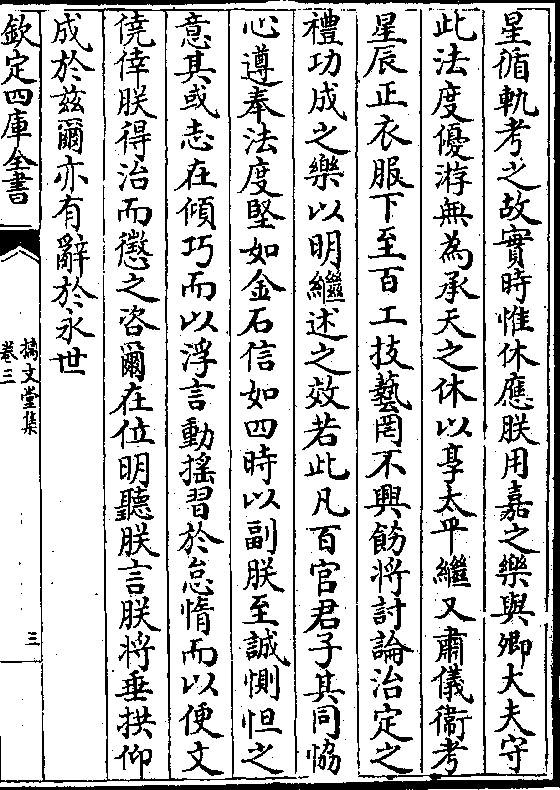 星循軌考之故實時惟休應朕用嘉之樂與卿大夫守
此法度優游無為承天之休以享太平繼又肅儀衛考
星辰正衣服下至百工技藝罔不興飭將討論治定之
禮功成之樂以明繼述之效若此凡百官君子其同恊
心遵奉法度堅如金石信如四時以副朕至誠惻怛之
意其或志在傾巧而以浮言動搖習於怠惰而以便文
僥倖朕得治而懲之咨爾在位明聽朕言朕將垂拱仰
成於兹爾亦有辭於永世
欽定四庫全書
摛文堂集
卷三
三